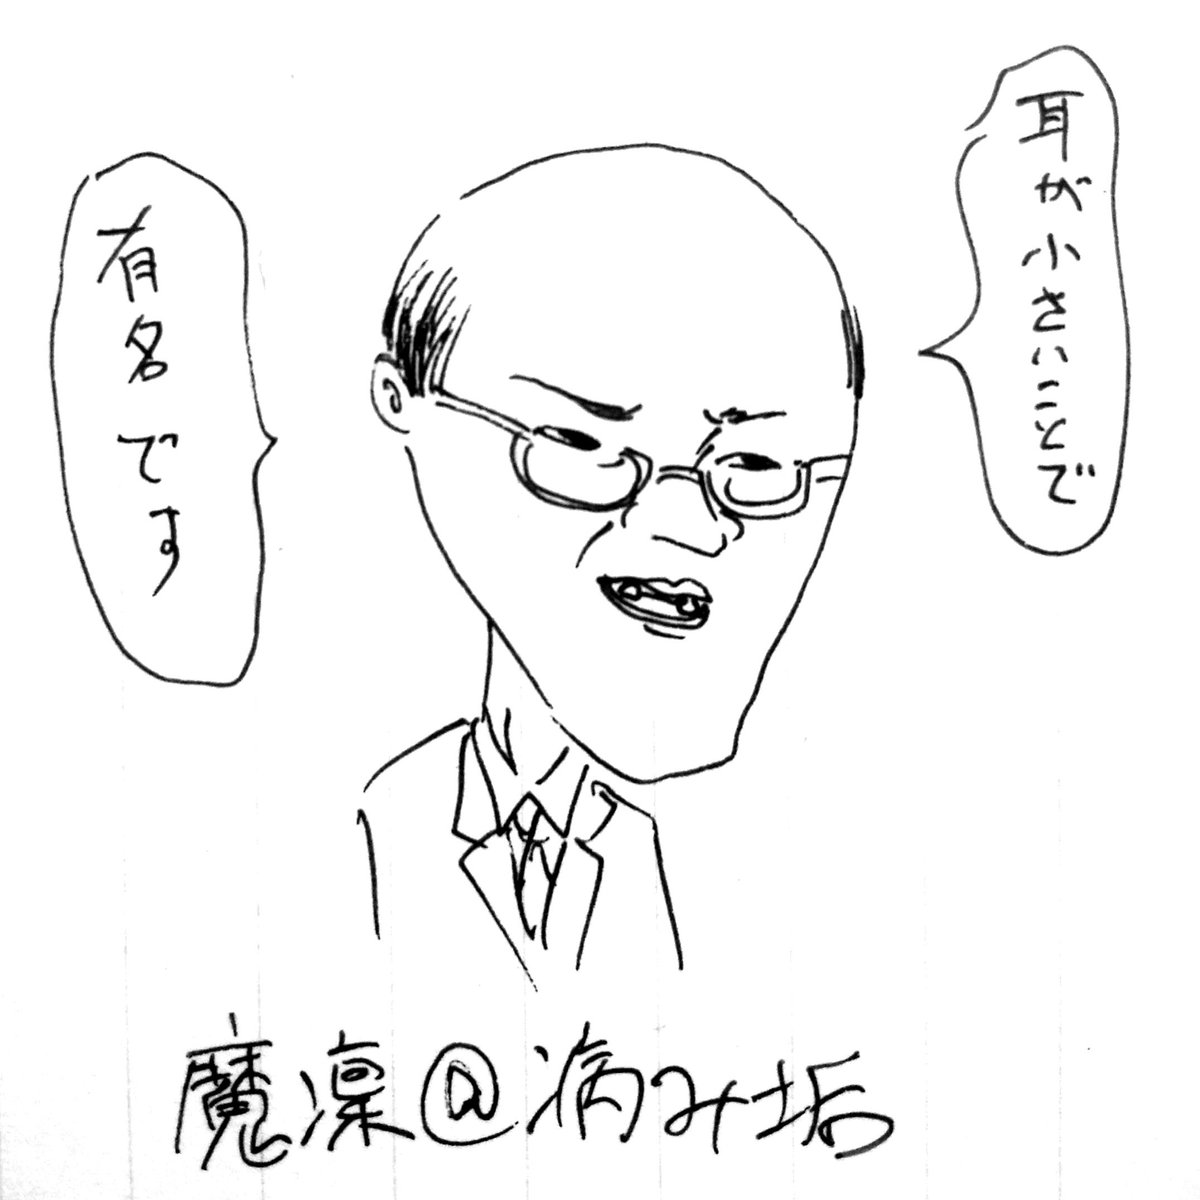 耳が小さいことで
有名です
魔凜@病み垢